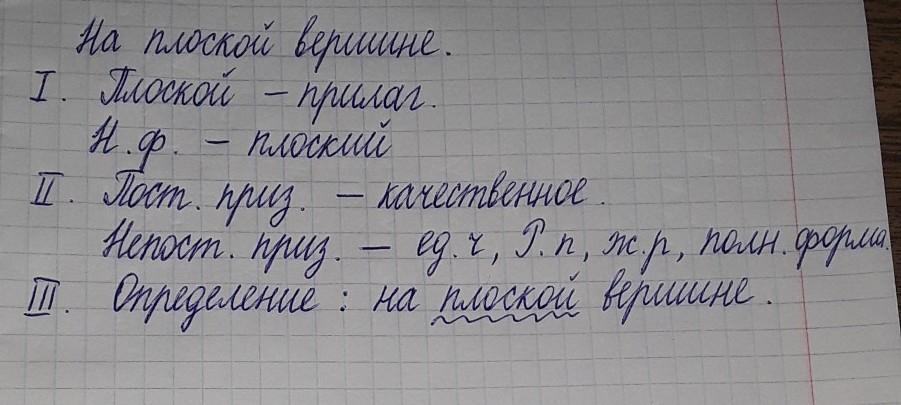 На плоской вершине.
I. Плоской – прилаг.
Н.ф. – плоский
II. Пост. приз. – качественное.
Непост. приз. – ед.ч, Р.п, ж.р, полн. форма.
III. Определение: на плоской вершине.